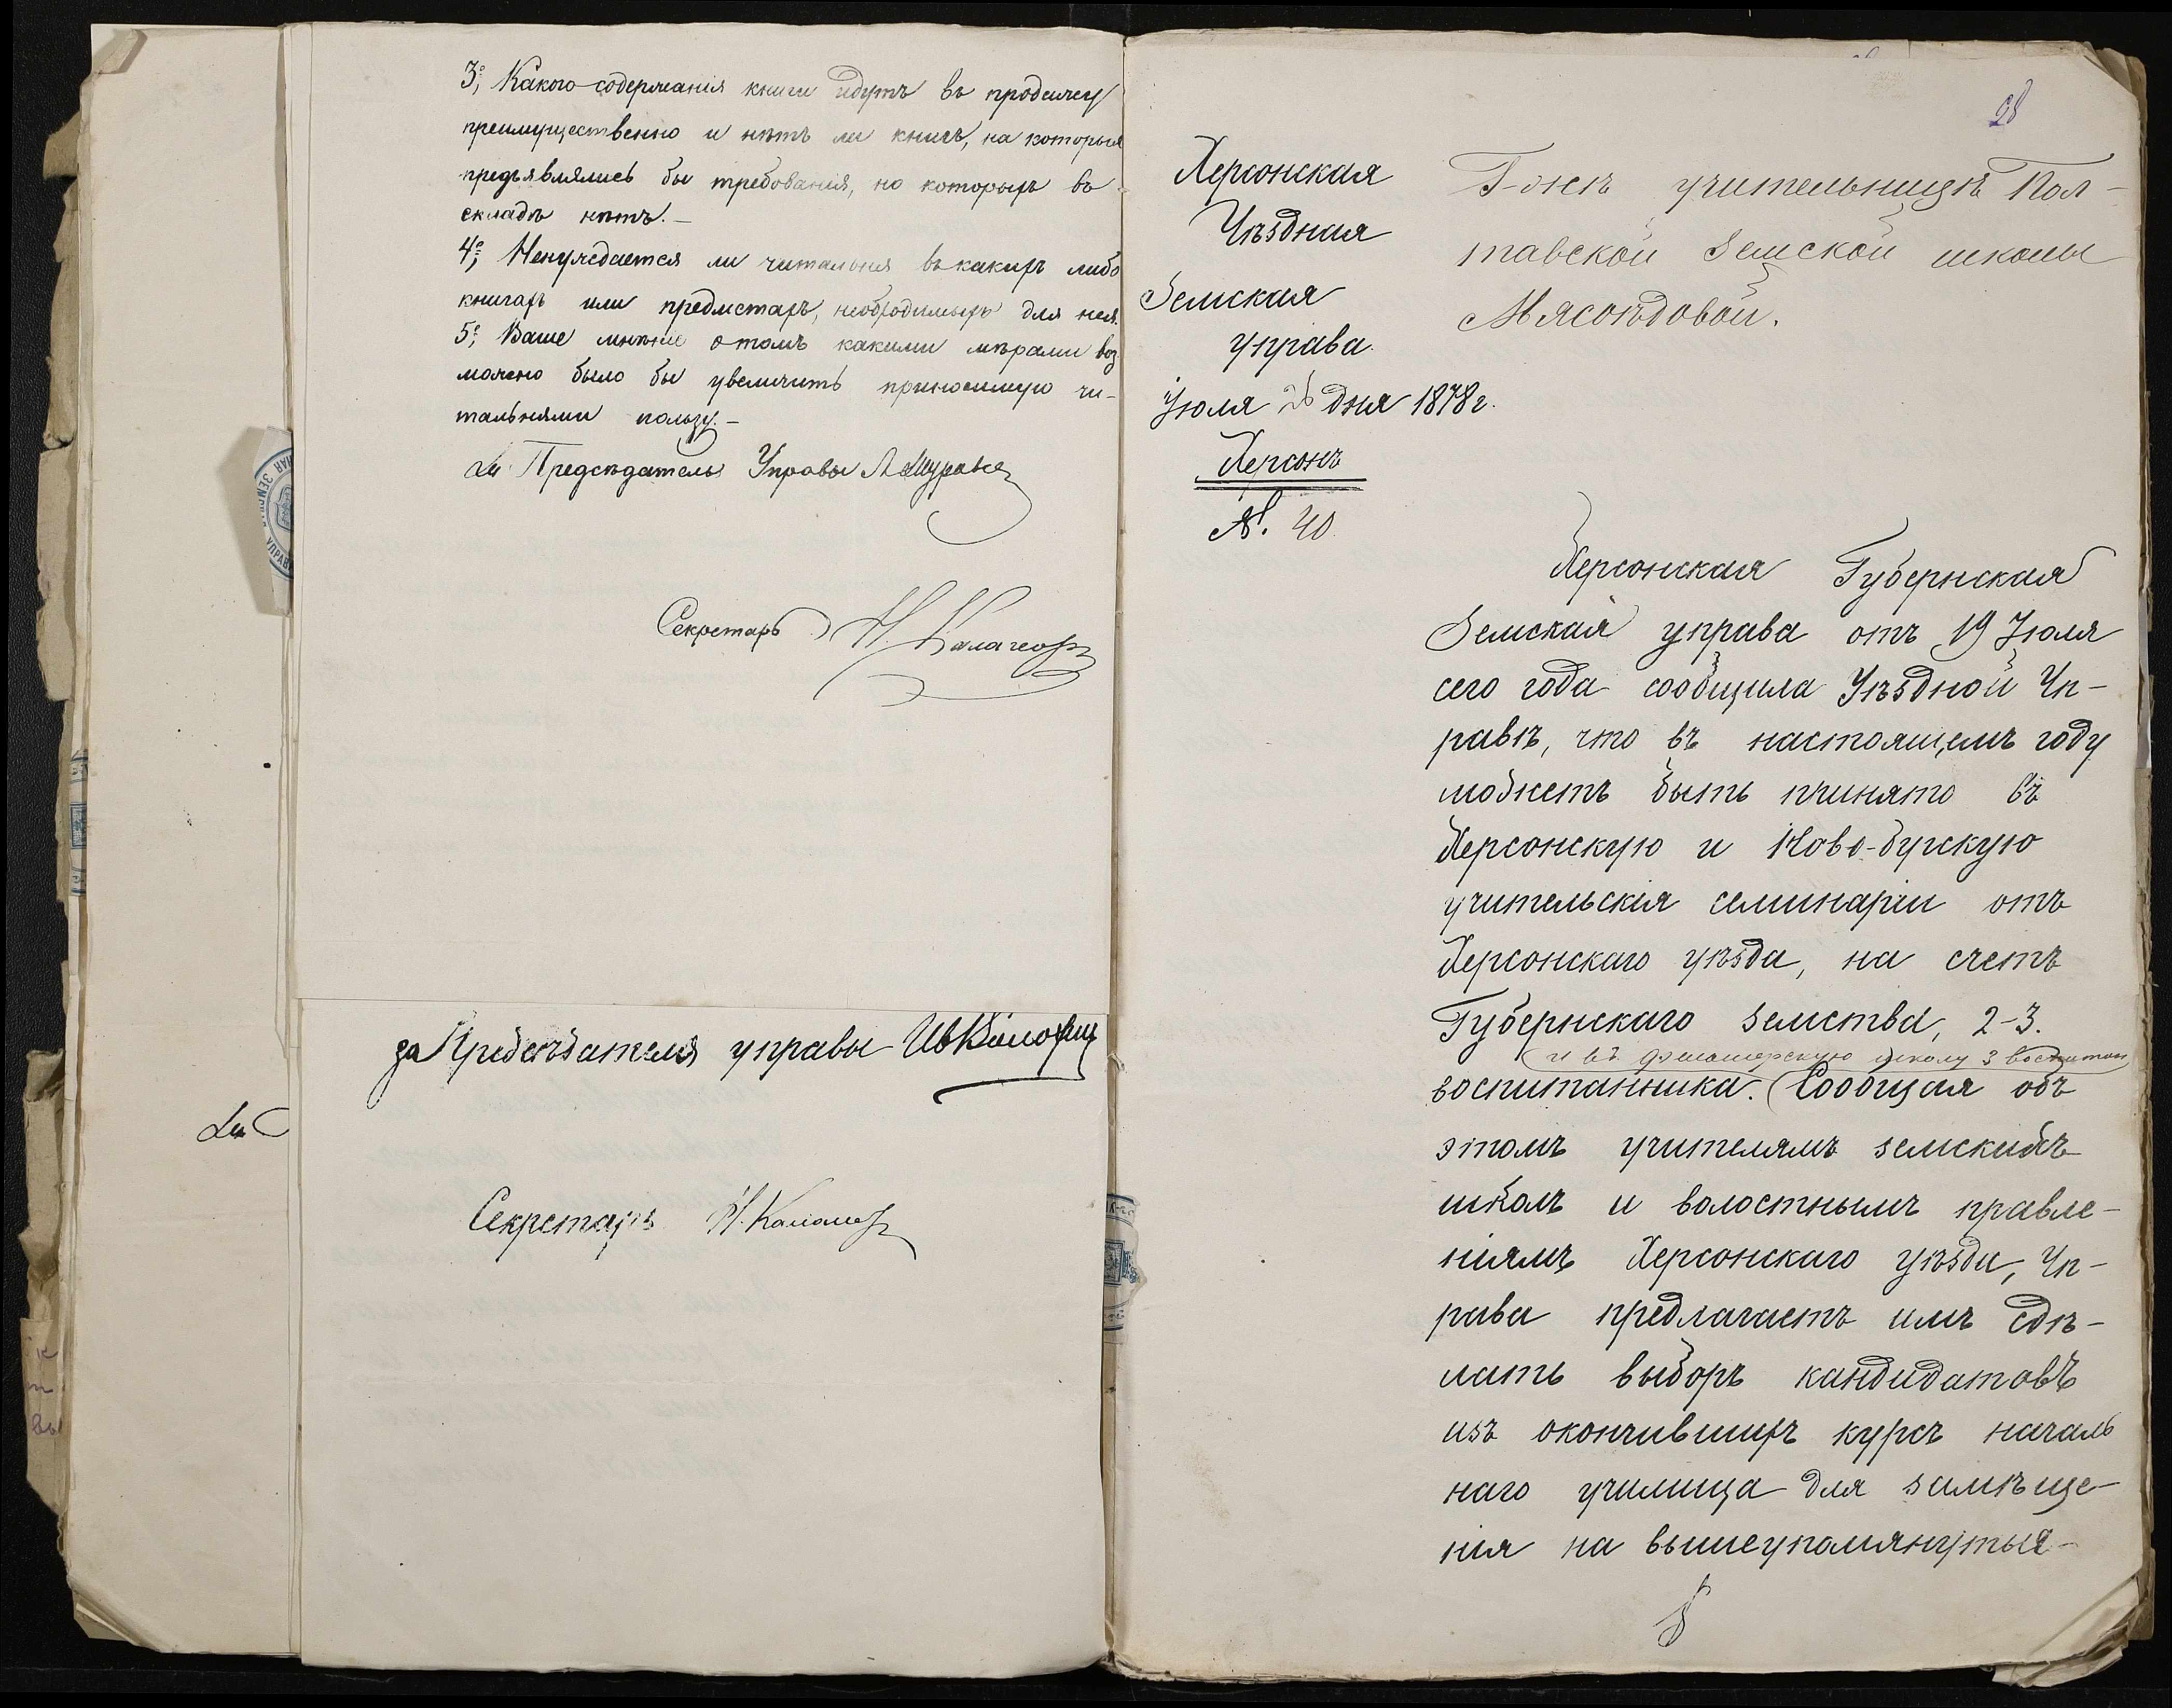 3º, Какого содержанія книги идутъ въ продажу
преимущественно и нѣтъ ли книгъ, на которыя
предъявлялись бы требованія, но которыхъ въ
складѣ нѣтъ.—
4º, Ненуждается ли читальня въ какихъ либо
книгахъ или предметахъ, необходимыхъ для нея.
5º, Ваше мнѣніе о томъ какими мѣрами воз
можно было бы увеличить приносимую чи-
тальнями пользу.—
Предсѣдатель Управы
Секретарь
за Предсѣдателя управы
Секретарь
Херсонская
Уѣздная
Земская
управа.
Іюля 26 дня 1878 г.
Херсонъ
№. 40.
Г-жѣ учительницѣ Пол-
тавской Земской школы
Мясоѣдовой.
Херсонская Губернская
Земская управа отъ 19 Іюля
сего года сообщила Уѣздной Уп-
равѣ, что въ настоящемъ году
можетъ быть принято въ
Херсонскую и Ново-бугскую
учительскія семинаріи отъ
Херсонскаго уѣзда, на счетъ
Губернскаго земства, 2-3.
и въ фельдшерскую школу 3 воспитан
воспитанника. Сообщая объ
этомъ учителямъ земскихъ
школъ и волостнымъ правле-
ніямъ Херсонскаго уѣзда, Уп-
рава предлагаетъ имъ сдѣ-
лать выборъ кандидатовъ
изъ окончившихъ курсъ началь
наго училища для замѣще-
нія на вышеупомянутыя-